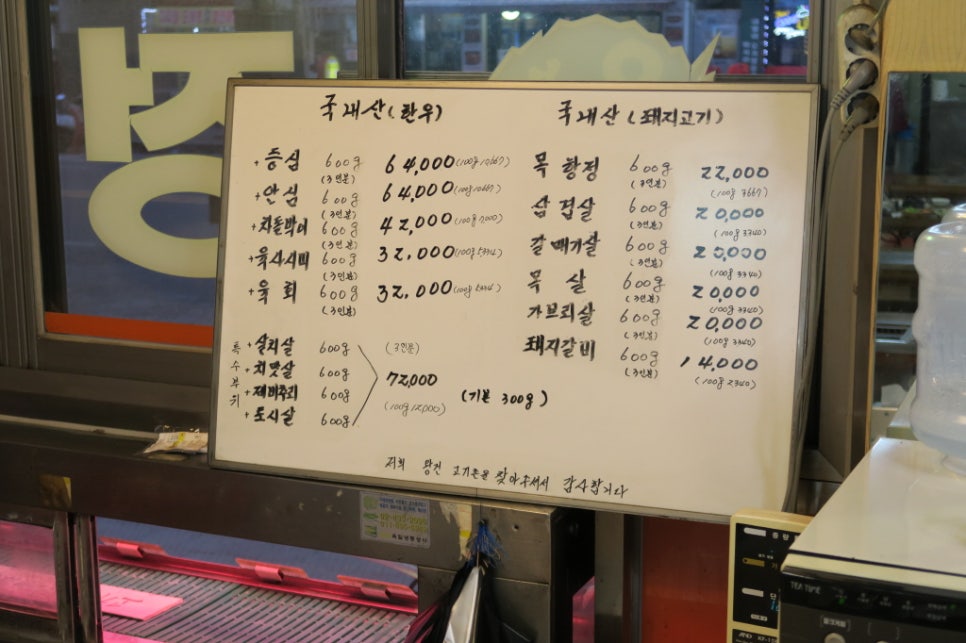 국내산(한우)
+ 등심 600g 64,000 (100g 10,667)
(3인분)
+ 안심 600g 64,000 (100g 10,667)
(3인분)
+ 차돌박이 600g 42,000 (100g 7,000)
(3인분)
+ 육사시미 600g 32,000 (100g 5,334)
(3인분)
+ 육회 600g 32,000
(3인분)
특수부위
+ 살치살 600g
+ 치맛살 600g
+ 제비추리 600g
+ 토시살 600g
(3인분)
72,000
(100g 12,000)
(기본 300g)
국내산(돼지고기)
목항정 600g 22,000
(3인분) (100g 3667)
삼겹살 600g 20,000
(3인분) (100g 3340)
갈매기살 600g 20,000
(3인분) (100g 3340)
목살 600g 20,000
(3인분) (100g 3340)
가브리살 600g 20,000
(3인분) (100g 3340)
돼지갈비 600g 14,000
(3인분) (100g 2340)
저희 왕건 고기촌을 찾아주셔서 감사합니다
TEA TIME
AND